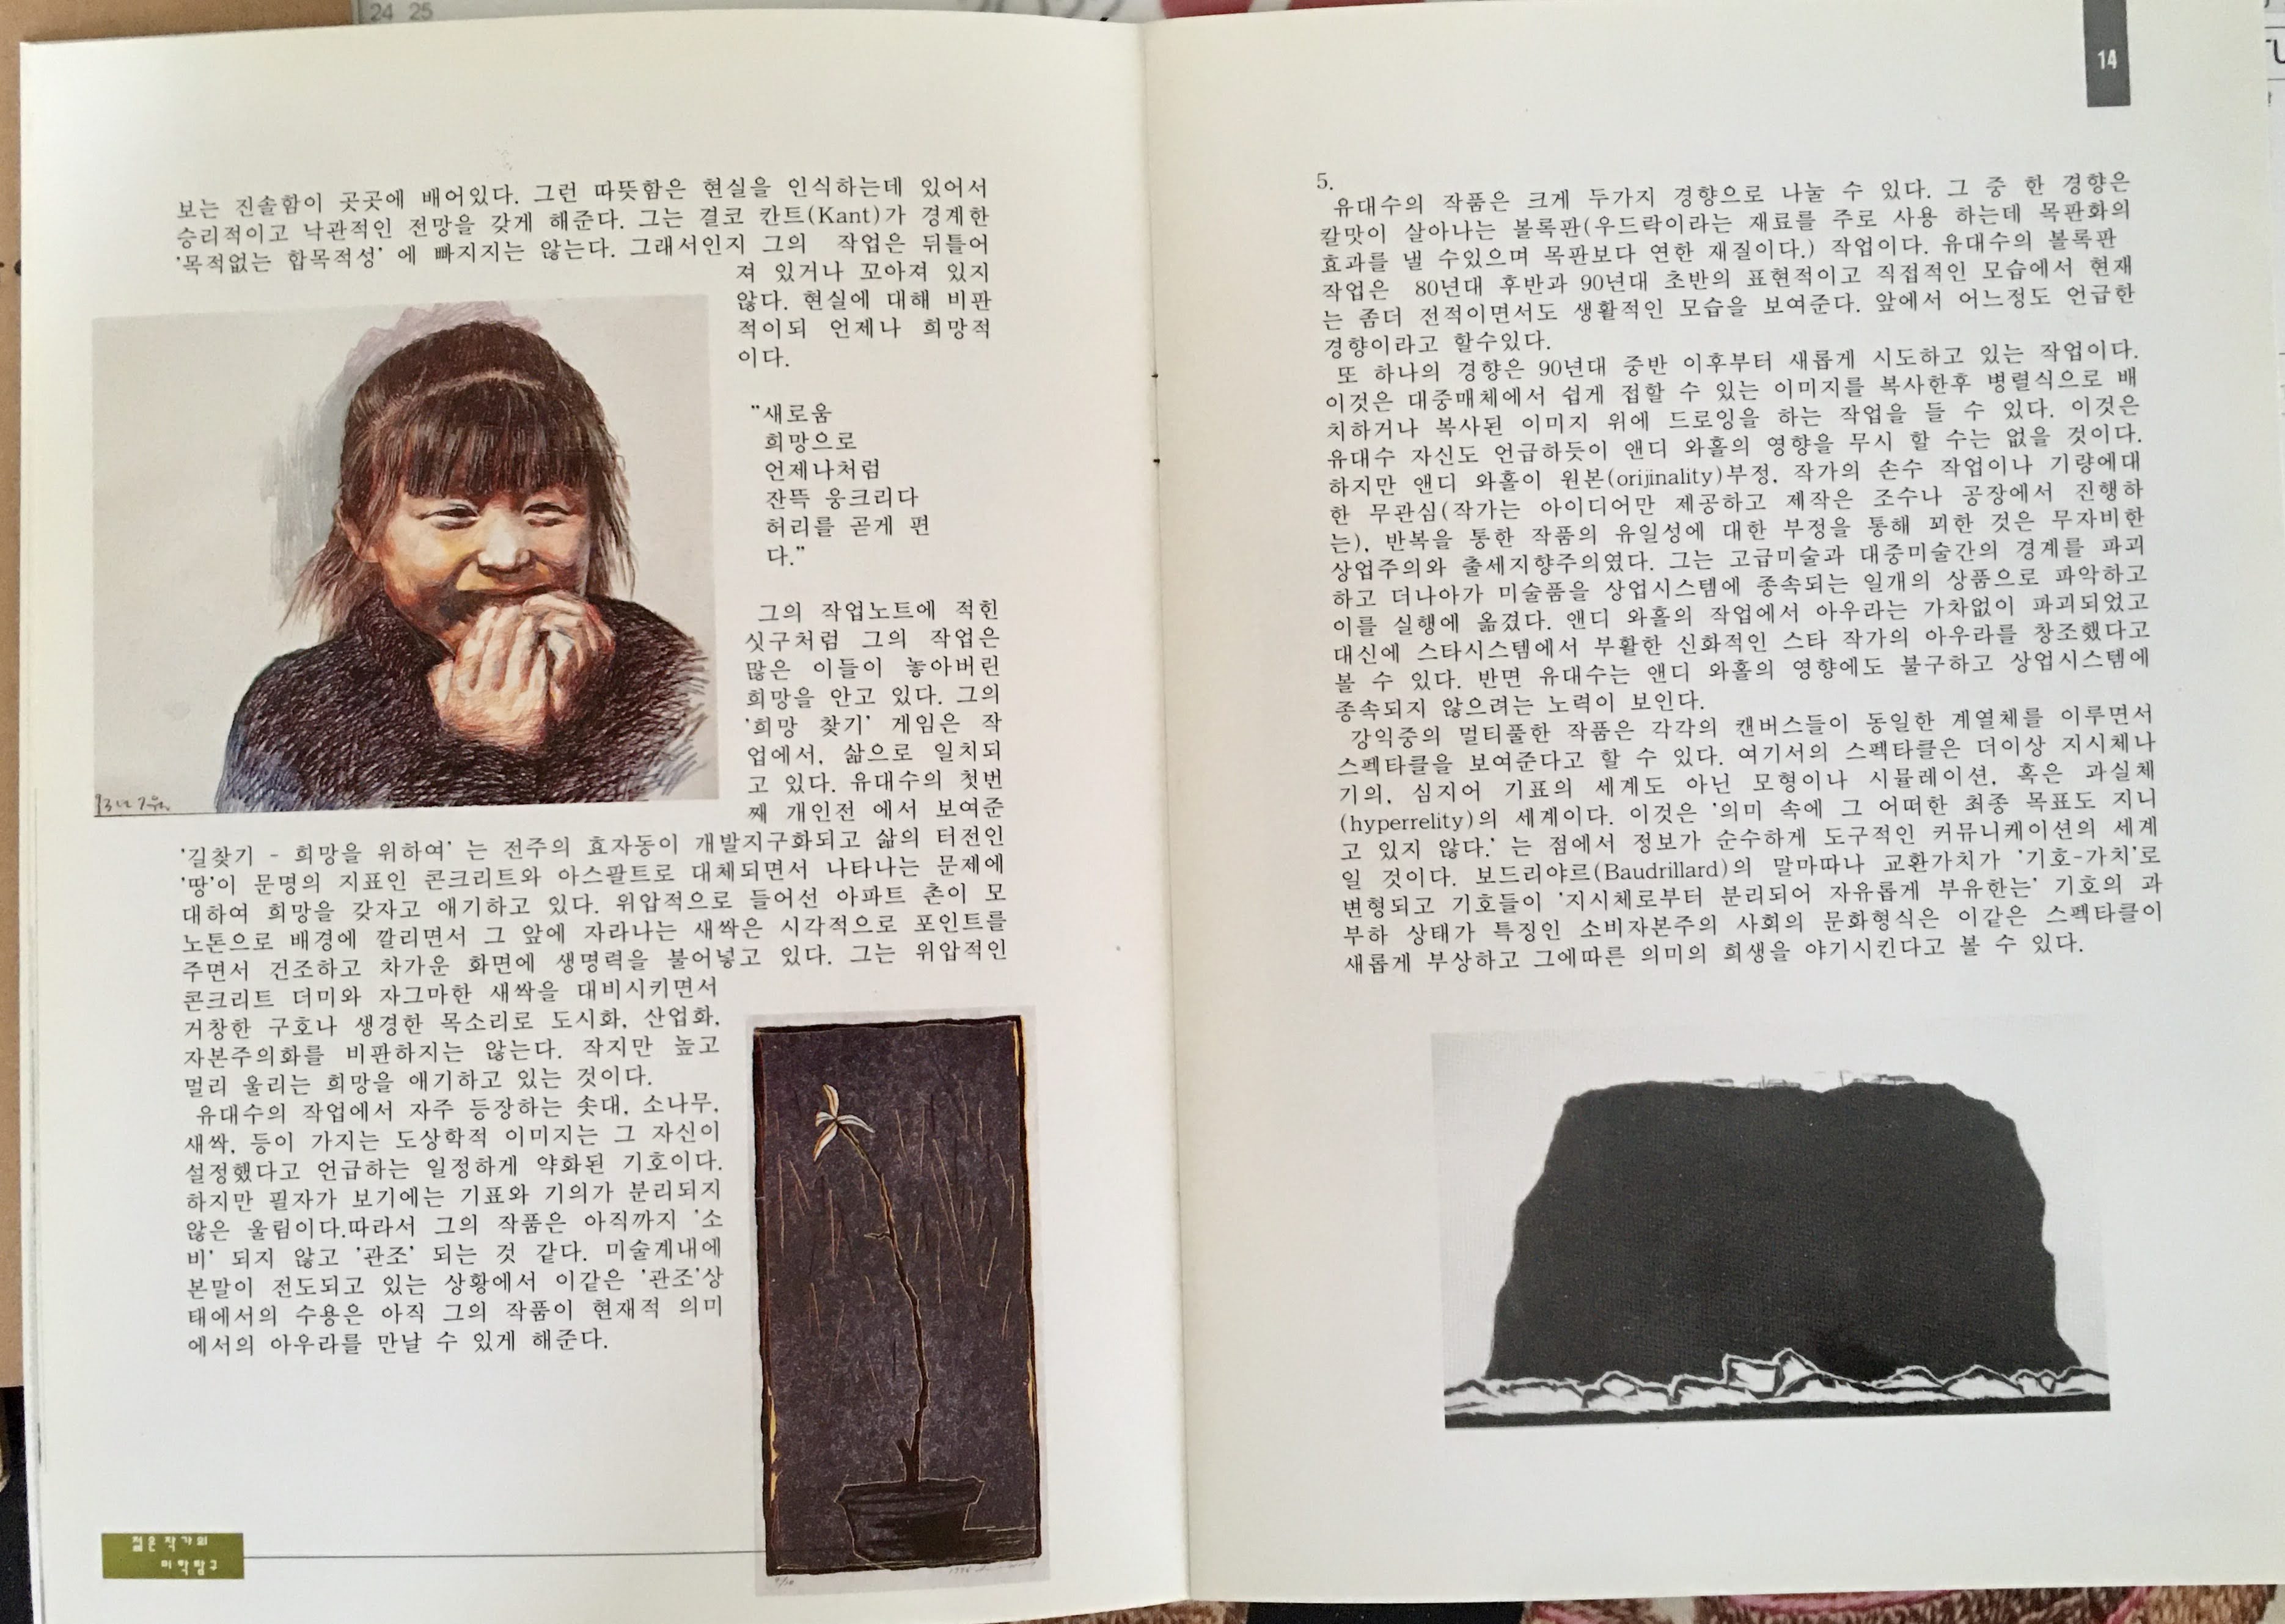 24 25
보는 진솔함이 곳곳에 배어있다. 그런 따뜻함은 현실을 인식하는데 있어서
승리적이고 낙관적인 전망을 갖게 해준다. 그는 결코 칸트(Kant)가 경계한
'목적없는 합목적성' 에 빠지지는 않는다. 그래서인지 그의 작업은 뒤틀어
져 있거나 꼬아져 있지
않다. 현실에 대해 비판
적이되 언제나 희망적
이다.
"새로움
희망으로
언제나처럼
잔뜩 웅크리다
허리를 곧게 편
다."
그의 작업노트에 적힌
싯구처럼 그의 작업은
많은 이들이 놓아버린
희망을 안고 있다. 그의
'희망 찾기' 게임은 작
업에서, 삶으로 일치되
고 있다. 유대수의 첫번
째 개인전 에서 보여준
'길찾기 - 희망을 위하여' 는 전주의 효자동이 개발지구화되고 삶의 터전인
'땅'이 문명의 지표인 콘크리트와 아스팔트로 대체되면서 나타나는 문제에
대하여 희망을 갖자고 얘기하고 있다. 위압적으로 들어선 아파트 촌이 모
노톤으로 배경에 깔리면서 그 앞에 자라나는 새싹은 시각적으로 포인트를
주면서 건조하고 차가운 화면에 생명력을 불어넣고 있다. 그는 위압적인
콘크리트 더미와 자그마한 새싹을 대비시키면서
거창한 구호나 생경한 목소리로 도시화, 산업화,
자본주의화를 비판하지는 않는다. 작지만 높고
멀리 울리는 희망을 얘기하고 있는 것이다.
유대수의 작업에서 자주 등장하는 솟대, 소나무,
새싹, 등이 가지는 도상학적 이미지는 그 자신이
설정했다고 언급하는 일정하게 약화된 기호이다.
하지만 필자가 보기에는 기표와 기의가 분리되지
않은 울림이다.따라서 그의 작품은 아직까지 '소
비' 되지 않고 '관조' 되는 것 같다. 미술계내에
본말이 전도되고 있는 상황에서 이같은 '관조'상
태에서의 수용은 아직 그의 작품이 현재적 의미
에서의 아우라를 만날 수 있게 해준다.
젊은 작가의
미학탐구
14
5.
유대수의 작품은 크게 두가지 경향으로 나눌 수 있다. 그 중 한 경향은
칼맛이 살아나는 볼록판(우드락이라는 재료를 주로 사용 하는데 목판화의
효과를 낼 수있으며 목판보다 연한 재질이다.) 작업이다. 유대수의 볼록판
작업은 80년대 후반과 90년대 초반의 표현적이고 직접적인 모습에서 현재
는 좀더 전적이면서도 생활적인 모습을 보여준다. 앞에서 어느정도 언급한
경향이라고 할수있다.
또 하나의 경향은 90년대 중반 이후부터 새롭게 시도하고 있는 작업이다.
이것은 대중매체에서 쉽게 접할 수 있는 이미지를 복사한후 병렬식으로 배
치하거나 복사된 이미지 위에 드로잉을 하는 작업을 들 수 있다. 이것은
유대수 자신도 언급하듯이 앤디 와홀의 영향을 무시 할 수는 없을 것이다.
하지만 앤디 와홀이 원본(orijinality)부정, 작가의 손수 작업이나 기량에대
한 무관심(작가는 아이디어만 제공하고 제작은 조수나 공장에서 진행하
는), 반복을 통한 작품의 유일성에 대한 부정을 통해 꾀한 것은 무자비한
상업주의와 출세지향주의였다. 그는 고급미술과 대중미술간의 경계를 파괴
하고 더나아가 미술품을 상업시스템에 종속되는 일개의 상품으로 파악하고
이를 실행에 옮겼다. 앤디 와홀의 작업에서 아우라는 가차없이 파괴되었고
대신에 스타시스템에서 부활한 신화적인 스타 작가의 아우라를 창조했다고
볼 수 있다. 반면 유대수는 앤디 와홀의 영향에도 불구하고 상업시스템에
종속되지 않으려는 노력이 보인다.
강익중의 멀티풀한 작품은 각각의 캔버스들이 동일한 계열체를 이루면서
스펙타클을 보여준다고 할 수 있다. 여기서의 스펙타클은 더이상 지시체나
기의, 심지어 기표의 세계도 아닌 모형이나 시뮬레이션, 혹은 과실체
(hyperrelity)의 세계이다. 이것은 '의미 속에 그 어떠한 최종 목표도 지니
고 있지 않다.' 는 점에서 정보가 순수하게 도구적인 커뮤니케이션의 세계
일 것이다. 보드리야르(Baudrillard)의 말마따나 교환가치가 '기호-가치'로
변형되고 기호들이 '지시체로부터 분리되어 자유롭게 부유한는' 기호의 과
부하 상태가 특징인 소비자본주의 사회의 문화형식은 이같은 스펙타클이
새롭게 부상하고 그에따른 의미의 희생을 야기시킨다고 볼 수 있다.